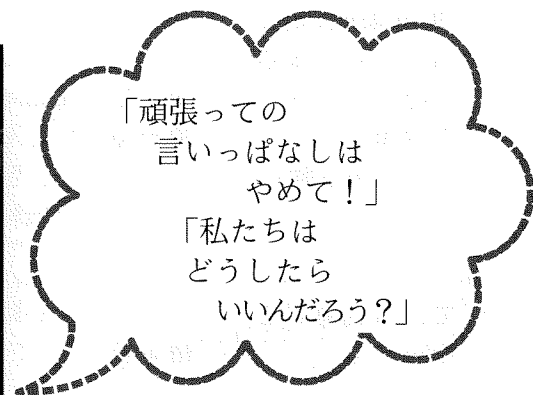 「頑張っての
言いっぱなしは
やめて！」
「私たちは
どうしたら
いいんだろう？」